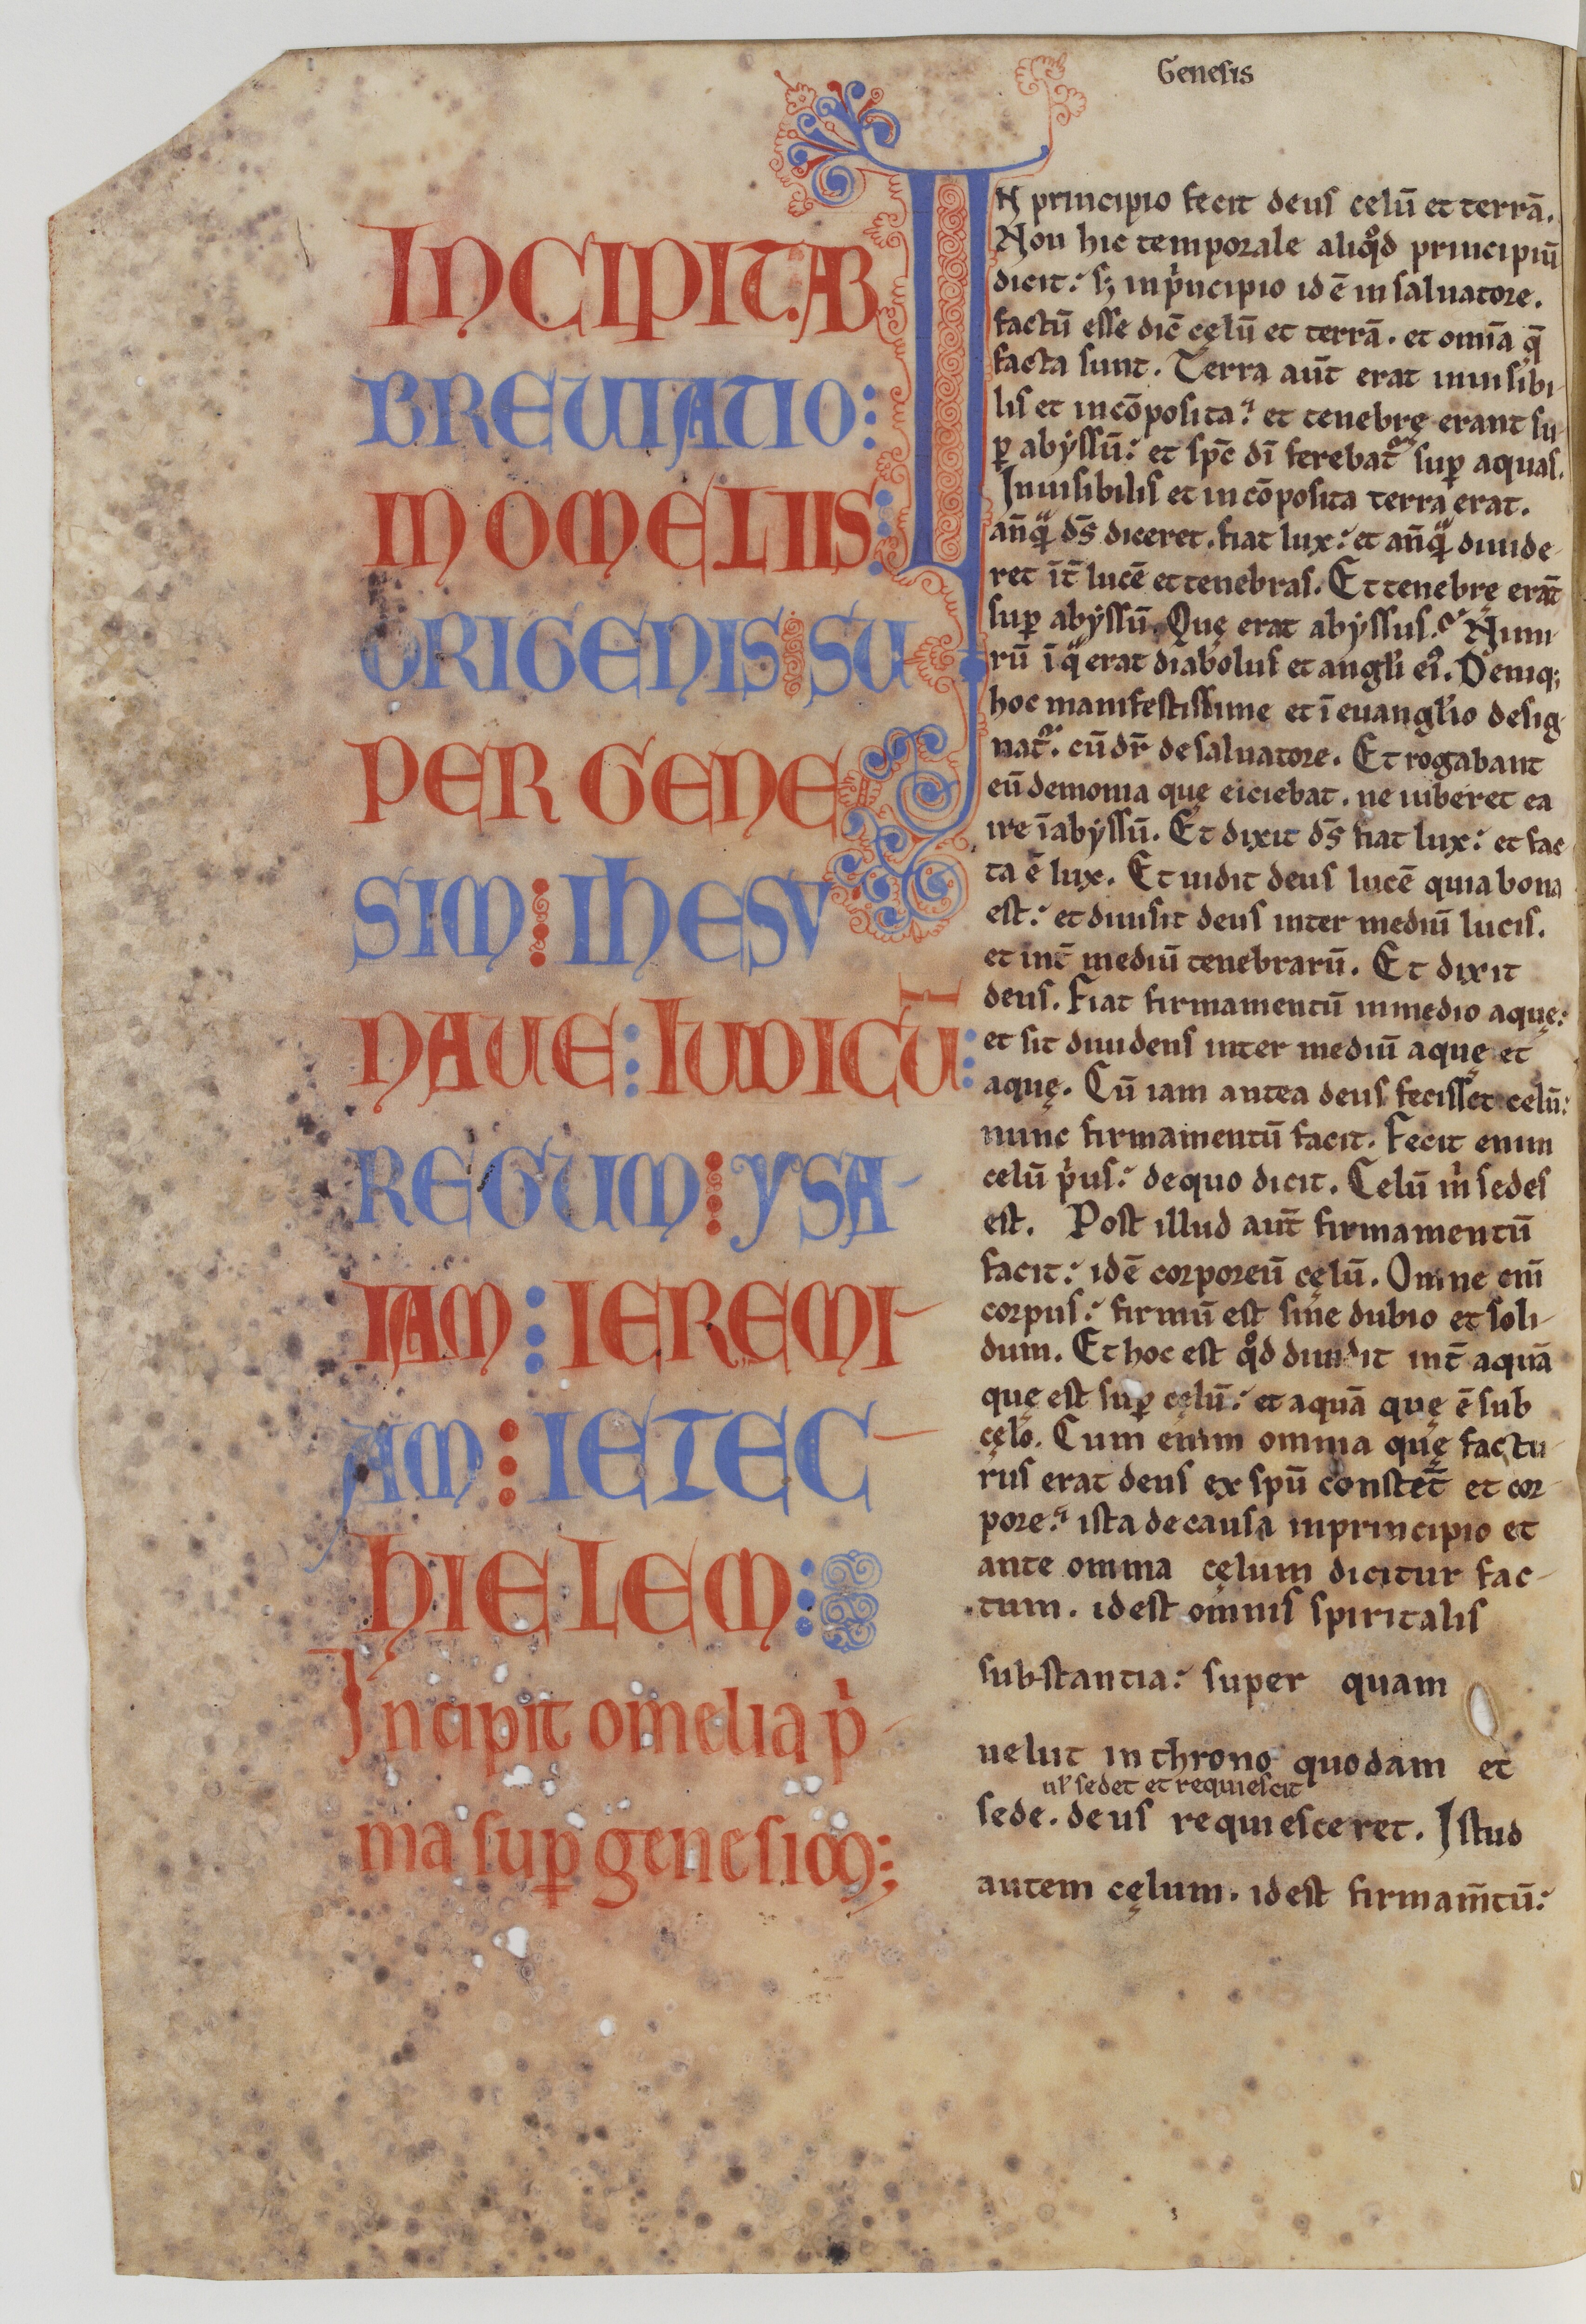 Genesis
INCIPIT AB
BREUIATIO:
IN OMELIIS:
ORIGENIS SU
PER GENE
SIM: IHESV
NAUE: IUDICŪ:
REGUM: YSA-
IAM: IEREMI-
AM: IEZEC-
HIELEM:
Incipit omelia p̍-
ma suꝑ genesim:
IN principio fecit deus celū et terrā.
Non hic temporale aliqͦd principiū
dicit: sꝫ inpͥncipio id ē in saluatore.
factū esse dic̄ cęlū et terrā. et om̄a q̄
facta sunt. Terra aūt erat inuisibi-
lis et incōposita: et tenebrę erant su-
ꝑ abyssū: et sp̄c dī ferebat᷑ suꝑ aquas.
Inuisibilis et incōposita terra erat.
an̄qᷓ dš diceret. fiat lux: et an̄qᷓ diuide-
ret īt̄ lucē et tenebras. Et tenebrę erāt
suꝑ abyssū. Quę erat abyssus? Nimi-
rū ī qͣ erat diabolus et angl̓i ei᷒. Deniqꝫ
hoc manifestissime et ī euangl̓io desig-
nat᷑. cū dr̄ de saluatore. Et rogabant
eū demonia quę eiciebat. ne iuberet ea
ire ī abyssū. Et dixit dš fiat lux: et fac-
ta ē lux. Et uidit deus lucē quia bona
est: et diuisit deus inter mediū lucis.
et int̄ mediū tenebrarū. Et dixit
deus. Fiat firmamentū in medio aquę:
et sit diuidens inter mediū aquę et
aquę. Cū iam antea deus fecisset celū:
nunc firmamentū facit. Fecit enim
celū pͥus: de quo dicit. Celū m̍ sedes
est. Post illud aūt firmamentū
facit: id ē corporeū cęlū. Omne eni̅
corpus: firmū est sine dubio et soli-
dum. Et hoc est qͦd diuidit int̄ aquā
quę est suꝑ cęlū: et aquā quę ē sub
cęlo. Cum enim omnia quę factu-
rus erat deus ex spū constet̄ et cor-
pore: ista de causa in principio et
ante omnia cęlum dicitur fac-
tum. id est omnis spiritalis
substantia: super quam
uelut in throno quodam et
ul̓ sedet et requiescit
sede. deus requiesceret. Istud
autem cęlum. id est firmam̄tū: